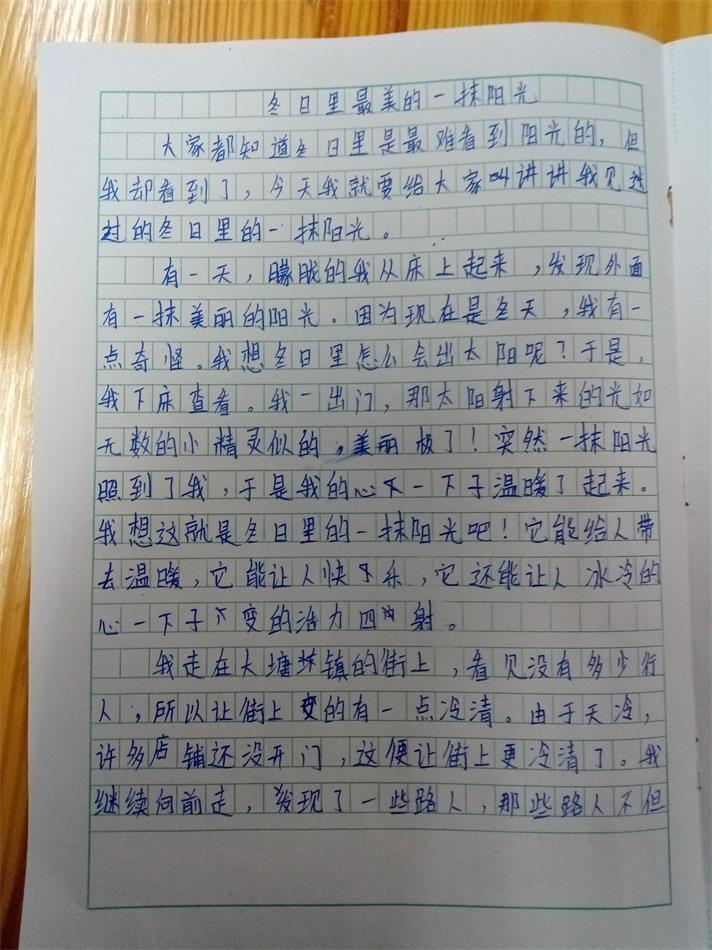 冬日里最美的一抹阳光
大家都知道冬日里是最难看到阳光的，但
我却看到了，今天我就要给大家叫讲讲我见过
过的冬日里的一抹阳光。
有一天，朦胧的我从床上起来，发现外面
有一抹美丽的阳光。因为现在是冬天，我有一
点奇怪。我想冬日里怎么会出太阳呢？于是，
我下床查看。我一出门，那太阳射下来的光如
无数的小精灵似的，美丽极了！突然一抹阳光
照到了我，于是我的心下一下子温暖了起来。
我想这就是冬日里的一抹阳光吧！它能给人带
去温暖，它能让人快乐，它还能让人冰冷的
心一下子变的活力四射。
我走在大塘镇的街上，看见没有多少行
人，所以让街上变的有一点冷清。由于天冷，
许多店铺还没开门，这便让街上更冷清了。我
继续向前走，发现了一些路人，那些路人不但